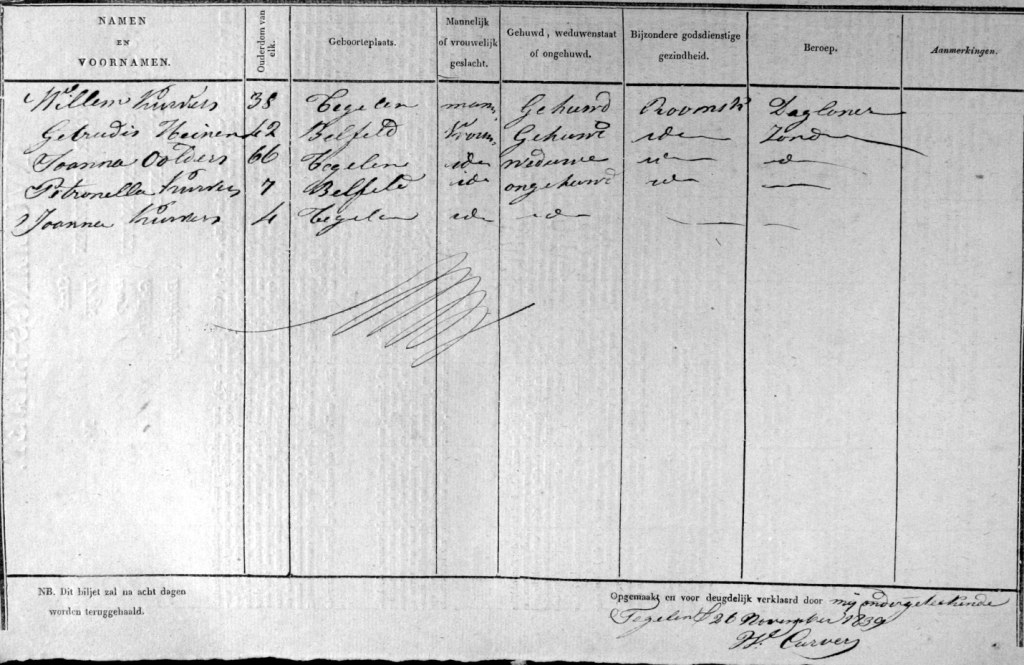 NAMEN EN VOORNAMEN. Ouderdom van elk. Geboorteplaats. Mannelijk of vrouwelijk geslacht. Gehuwd, weduwenstaat of ongehuwd. Bijzondere godsdienstige gezindheid. Beroep. Aanmerkingen.
Willem Kurvers 38 Tegelen man Gehuwd Roomsk Dagloner
Getrudis Heinen 42 Belfeld Vrouw Gehuwd idem Zonder
Joanna Oolders 66 Tegelen idem weduwe idem id
Petronella Kurvers 7 Belfeld idem ongehuwd idem —
Joanna Kurvers 4 Tegelen idem idem — —
NB. Dit biljet zal na acht dagen
worden teruggehaald.
Opgemaakt en voor deugdelijk verklaard door mij ondergeteekende
Tegelen 26 November 1839
Wm Curvers